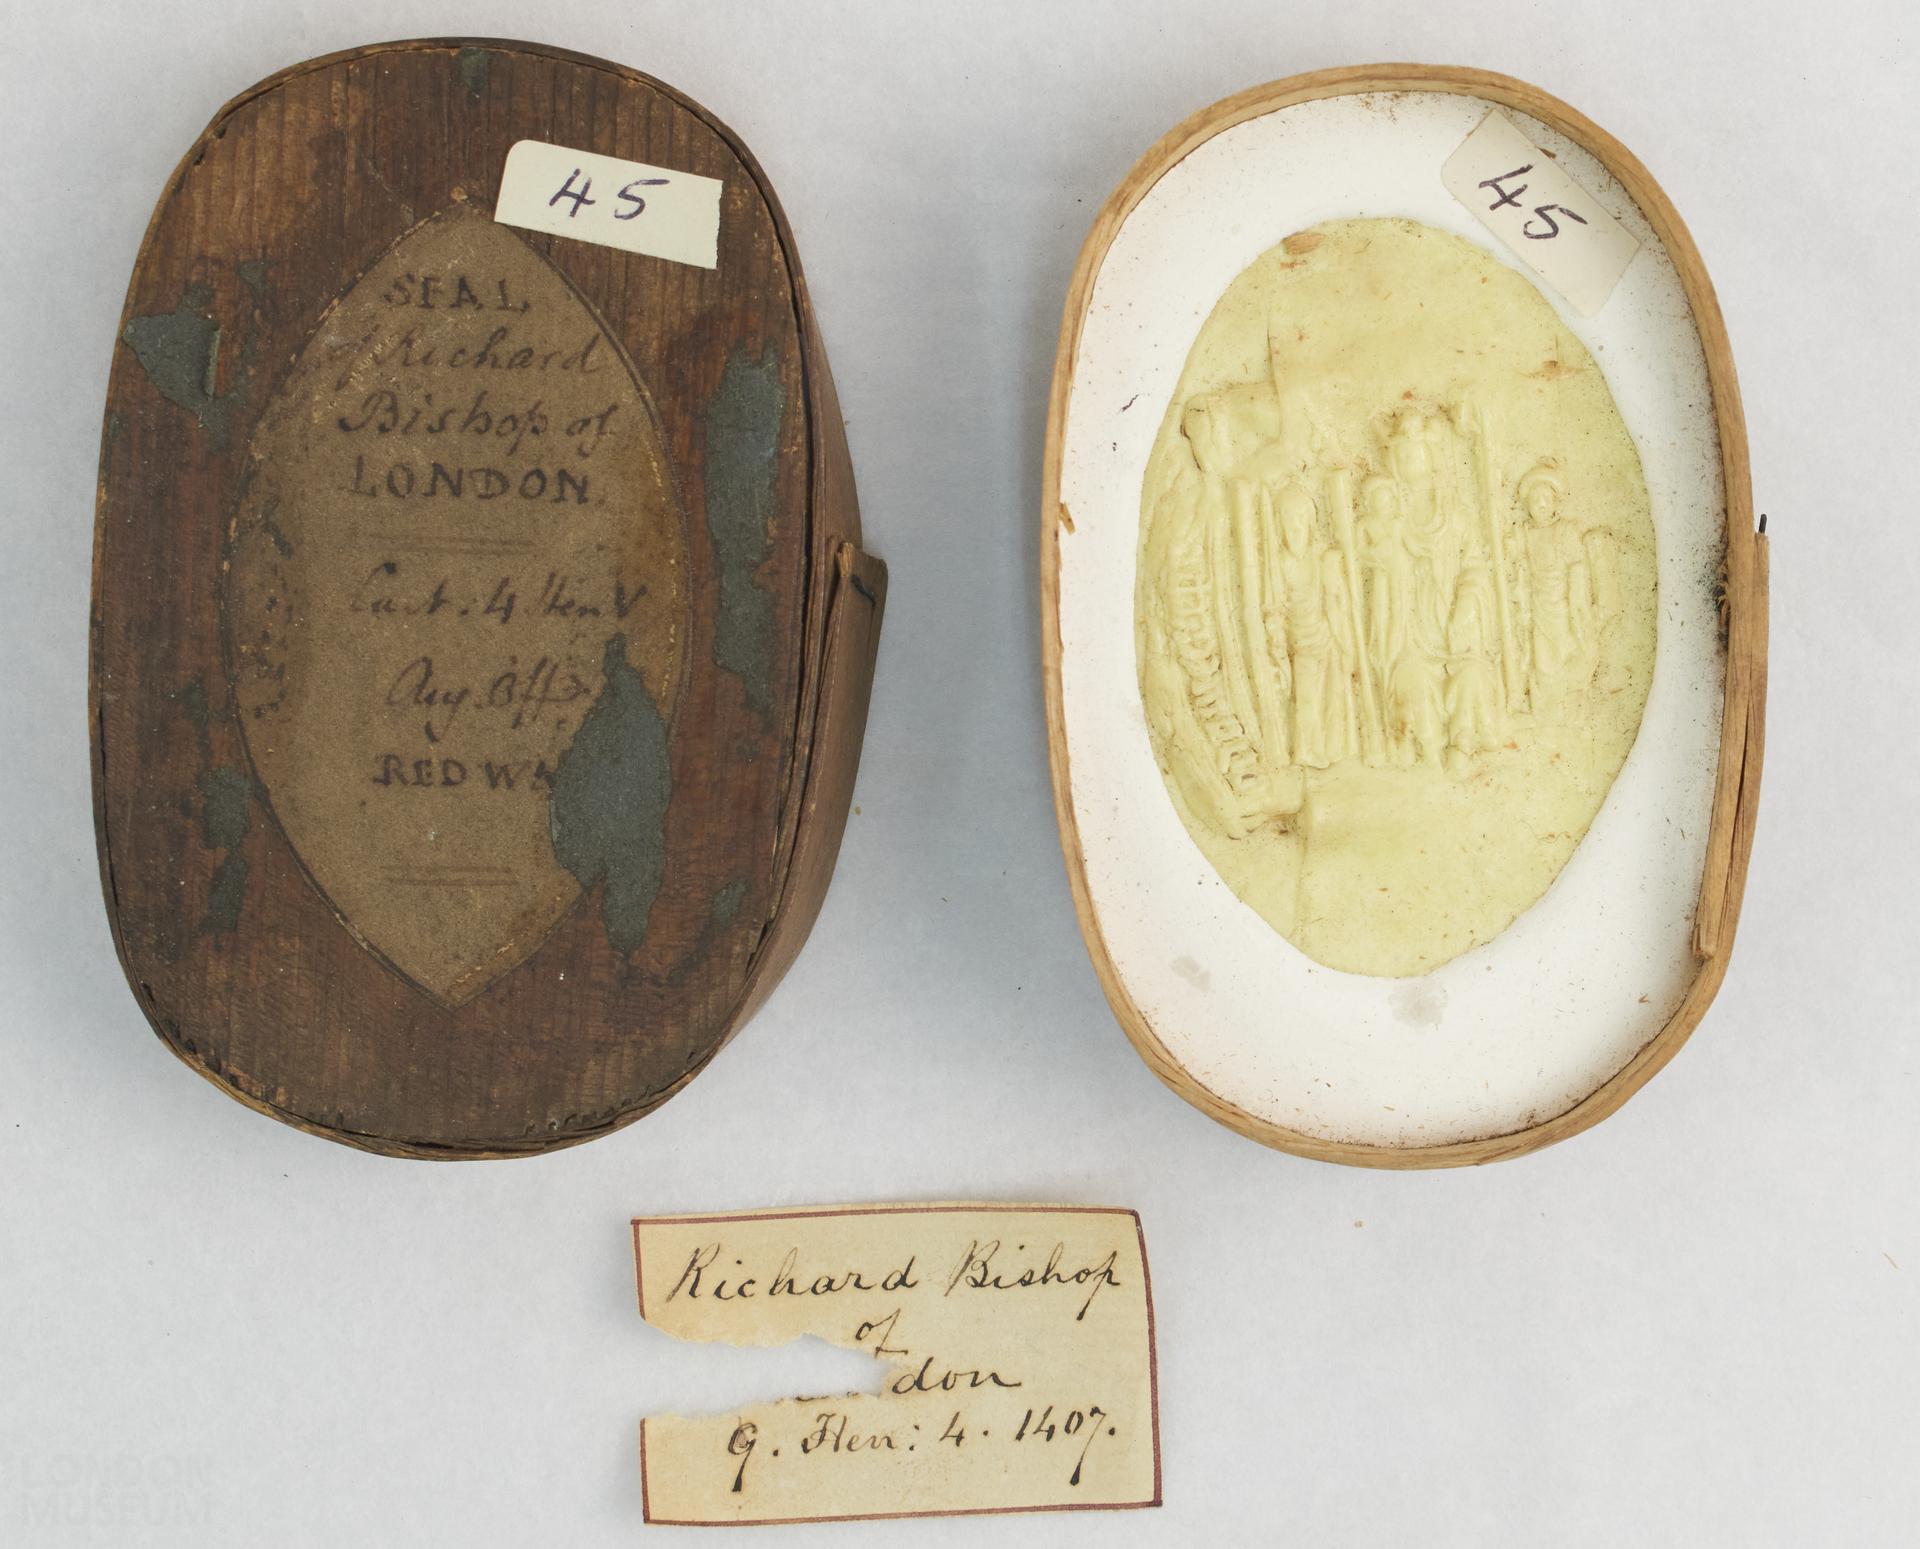 45
SEAL
of Richard
Bishop of
LONDON
Cart: 4 Hen V
Aug. Off:
RED WA
45
Richard Bishop
of
don
9. Hen: 4. 1407.
LONDON
MUSEUM